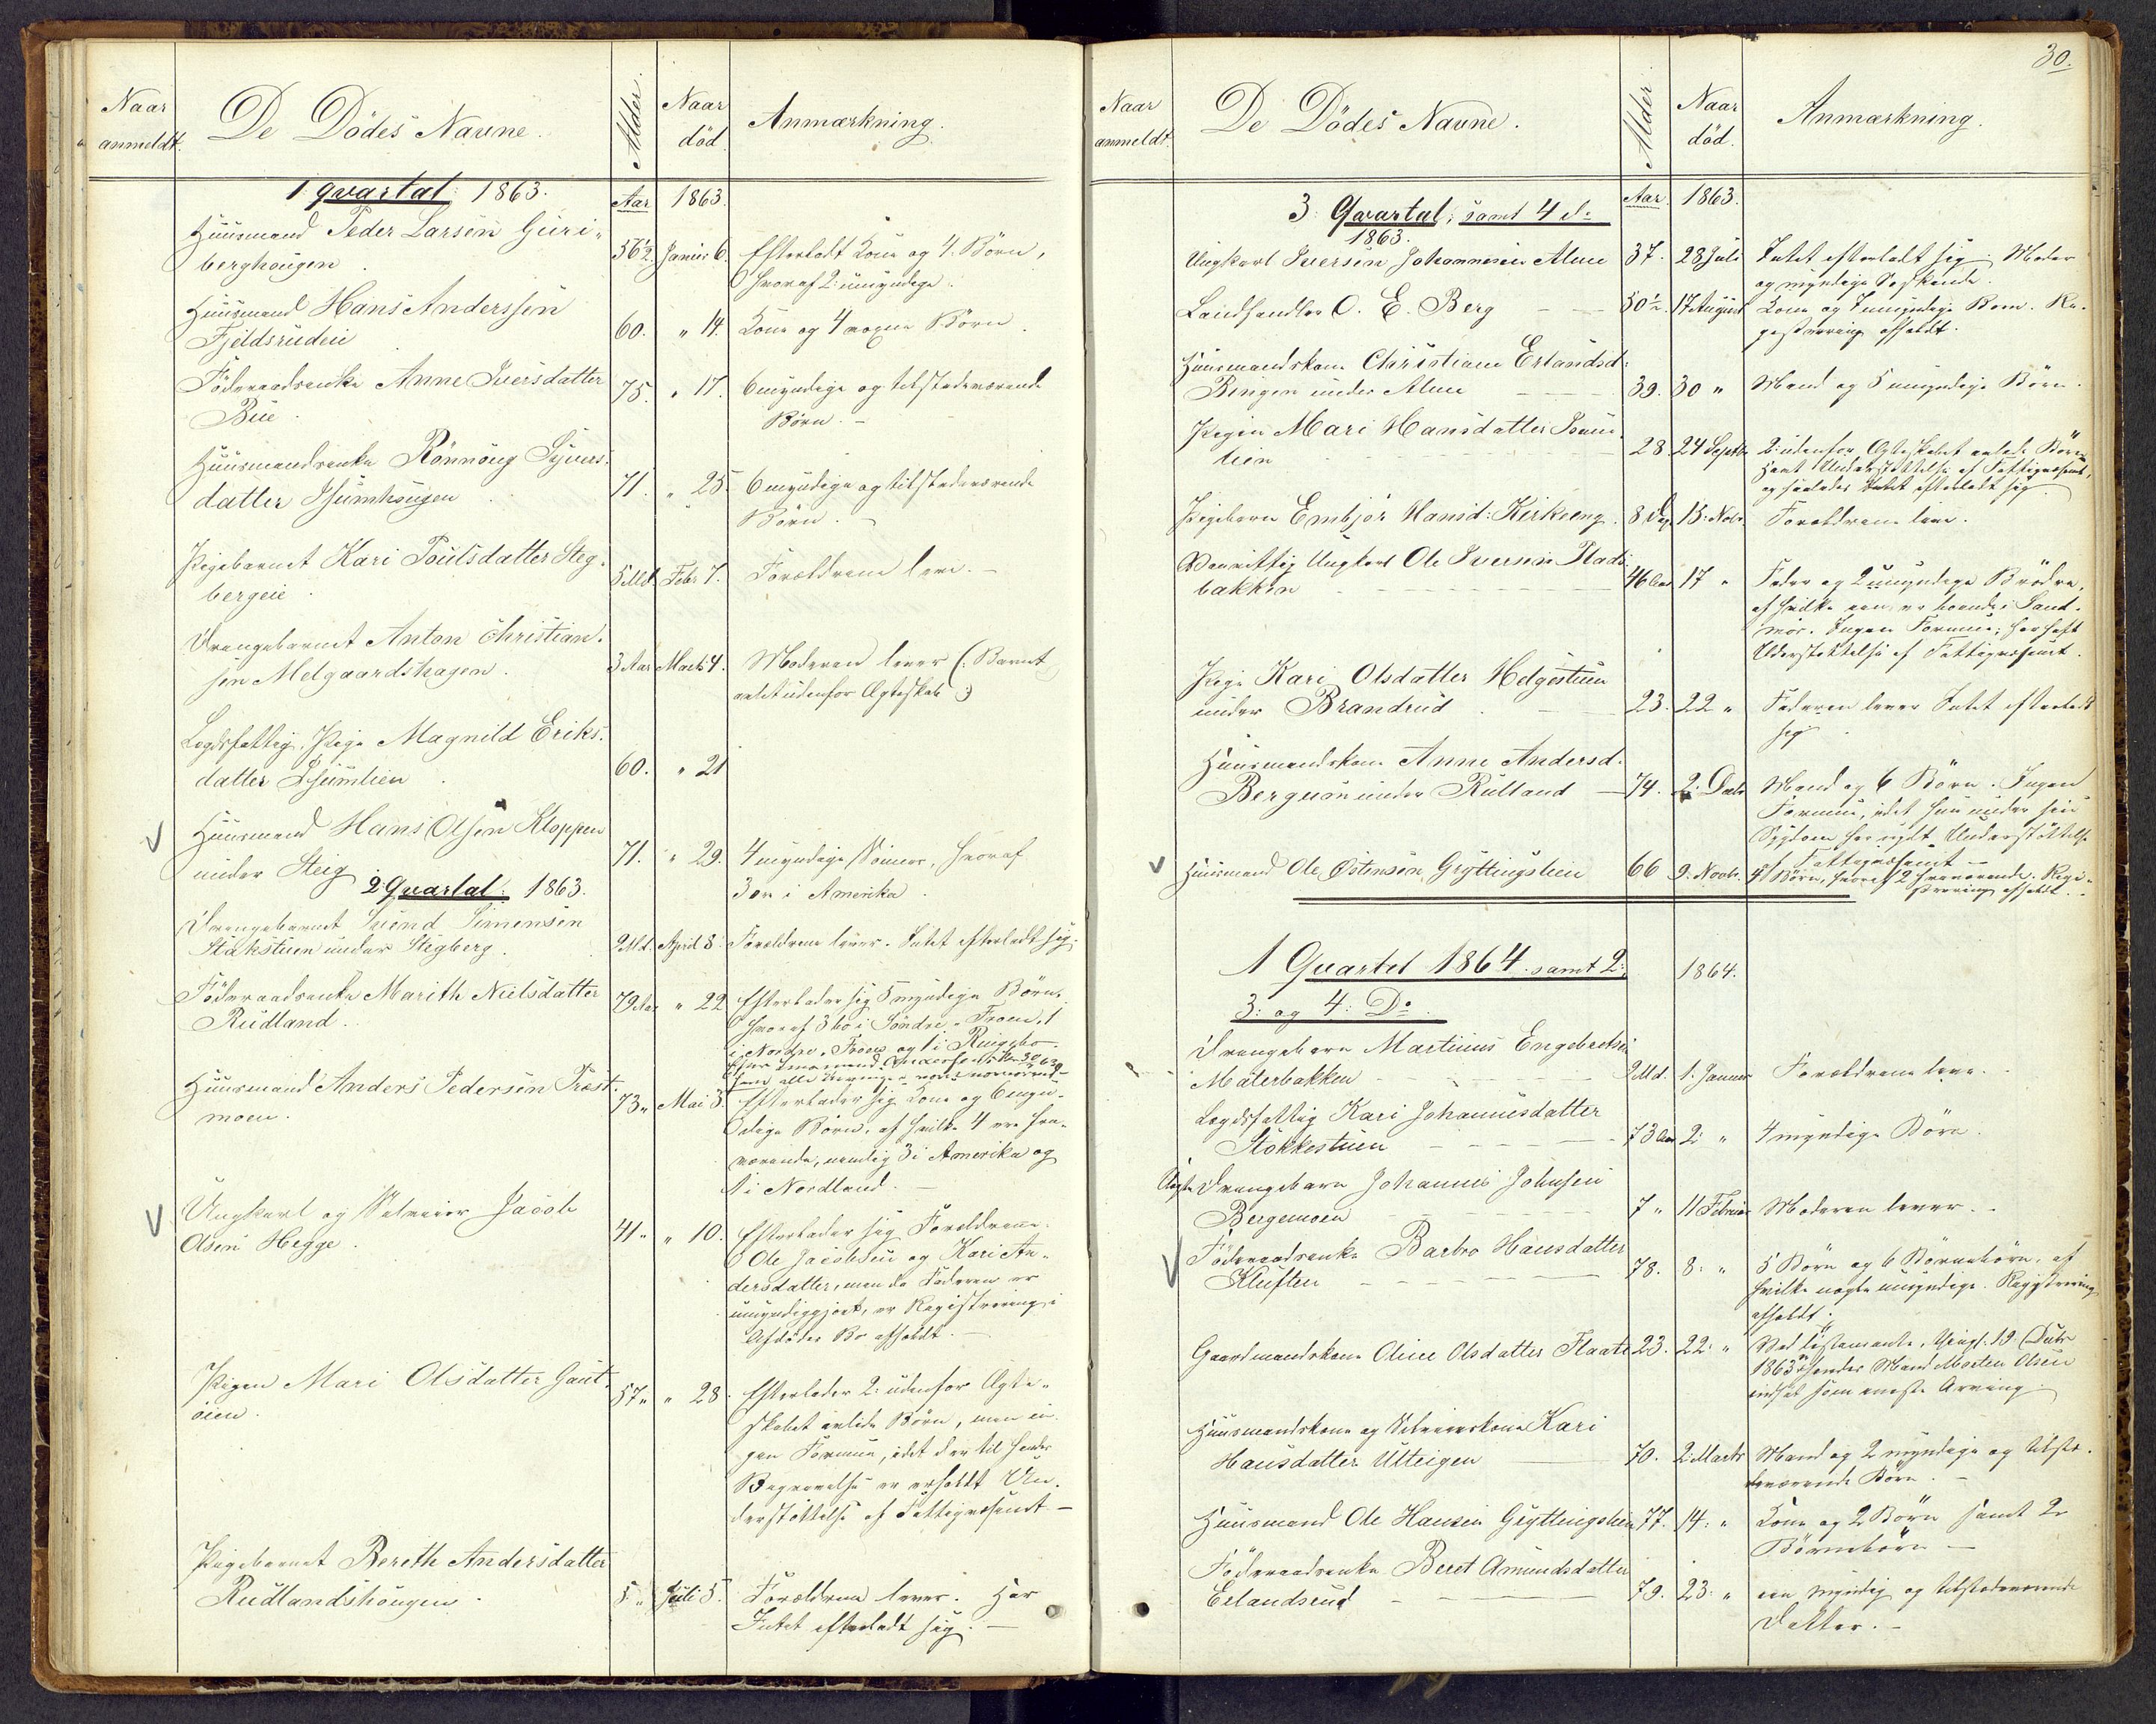 Naar
anmeldt.
De Dödes Navne.
Alder.
Naar
död.
Anmærkning.
1 Qvartal: 1863.
Aar
1863.
Huusmand Peder Larsen Guri-
berghaugen.
56½
Januar 6.
Efterladt Kone og 4 Børn,
hvoraf 2 umyndige.
Huusmand Hans Anderssen
Fjeldsrudeie
60.
" 14.
Kone og 4 voxne Børn.
Föderaadsenke Anne Iversdatter
Bue.
75.
" 17.
6 myndige og tilstedeværende
Børn. -
Huusmandsenke Rönnoug Syvers-
datter Isumhaugen
71.
" 25.
6 myndige og tilstedeværende
Børn. -
Pigebarnet Kari Poulsdatter Steg-
bergeie.
5 Md.
Febr 7.
Forældrene leve. -
Drengebarnet Anton Christian-
sen Melgaardshagen.
3 Aar
Marts 4.
Moderen lever (: Barnet
avlet udenfor Ægteskab :)
Lægdsfattig Pige Magnild Eriks-
datter Isumlien
60.
" 21
Huusmand Hans Olsen Kloppen
under Steig
71.
" 29.
4 myndige Sønner, hvoraf
3 er i Amerika.
2 Qvartal: 1863.
Drengebarnet Simensen
Stakstuen under Stegberg.
2 Md.
April 8.
Forældrene lever. Intet efterladt sig.
Föderaadsenke Marith Nielsdatter
Rudland.
79 Aar
" 22
Efterlader sig 5 myndige Børn,
hvoraf 3 bo i Söndre Froen, 1
i Nordre Froen og 1 i Ringebo.
Huusmand Anders Pedersen Prest-
moen.
73 "
Mai 3.
Efterlader sig Kone og 6 myn-
dige Børn, af hvilke 4 ere fra-
værende, nemlig 3 i Amerika og
1 i Nordland. -
Ungkarl og Selveier Jacob
Olsen Hegge.
41 "
" 10.
Efterlader sig Forældrene
Ole Jacobsen og Kari An-
dersdatter, men da Faderen er
umyndiggjort, er Registrering i
Afdødes Bo afholdt. -
Pigen Mari Olsdatter Gaut-
öien.
57 "
" 28.
Efterlader 2 udenfor Ægte-
skabet avlede Børn, men in-
gen Formue, idet der til hendes
Begravelse er erholdt Un-
derstöttelse af Fattigvæsenet -
Pigebarnet Bereth Andersdatter
Rudlandshaugen.
5 "
Juli 5.
Forældrene lever. Har
Intet efterladt sig. -
30.
Naar
anmeldt.
De Dödes Navne.
Alder.
Naar
död.
Anmærkning.
3: Qvartal, samt 4 d:
1863.
Aar.
1863.
Ungkarl Iversen Johannesen Alme
37.
28 Juli
Intet efterladt sig. Moder
og myndige Söskende.
Landhandler O. E. Berg
50½.
17 August
Kone og 7 umyndige Born. Re-
gistrering afholdt.
Huusmandskone Christiane Erlandsd:
Bingen under Alme
39.
30 "
Mand og 5 umyndige Börn.
Pigen Mari Hansdatter Isum-
lien
28.
24 Septbr
2 udenfor Ægteskabet avlede Börn
samt Understöttelse af Fattigvæsenet,
og saaledes Intet efterladt sig.
Pigebarn Embjör Hansd: Kirkeeng.
8 Dag
15: Novbr.
Forældrene leve.
Vanvittig Ungkarl Ole Iversen Plads-
bakken
46 Aar
17 "
Fader og 2 umyndige Brödre,
af hvilke een er boende i Sand-
mör. Ingen Formue; har havt
Understöttelse af Fattigvæsenet.
Pige Kari Olsdatter Helgestuen
under Brandrud
23.
22 "
Faderen lever Intet efterladt
sig.
Huusmandskone Anne Andersd.
Berguon under Rulland
74.
2: Decbr
Mand og 6 Börn. Ingen
Formue, idet hun under sin
Sygdom har nydt Understöttelse
af Fattigvæsenet -
Huusmand Ole Östensen Gryttingslien
66
9: Novbr.
4 Börn, hvoraf 2 fraværende. Regi-
strering afholdt. -
1 Qvartal 1864 samt 2:
3: og 4: Do.
1864.
Drengebarn Martinus Engebretsen
Malerbakken
2 Md.
1: Januar
Forældrene leve.
Lægdsfattig Kari Johannesdatter
Stokkestuen
73 Aar
2: "
4 myndige Börn.
Uægte Drengebarn Johannes Johnsen
Bergemoen
7 "
11 Februar
Moderen lever. -
Föderaadsenke Barbro Hansdatter
Kluften
78.
8: "
5 Börn og 6 Börnebörn, af
hvilke nogle umyndige. Registrering
afholdt.
Gaardmandskone Oline Olsdatter Flaate
23.
22: "
Ved Testamente, 19 Octbr
1863 hendes Mand Morten Olsen
indsat som eneste Arving.
Huusmandskone og Selveierskone Kari
Hansdatter Ulteigen
70.
2: Marts
Mand og 2 myndige og tilste-
deværende Börn. -
Huusmand Ole Hansen Gryttingslien
77.
14: "
Kone og 2 Börn samt 2
Börnebörn -
Föderaadsenke Beret Amundsdatter
Erlandsrud
79.
23: "
een myndig og tilstedeværende
Datter. -